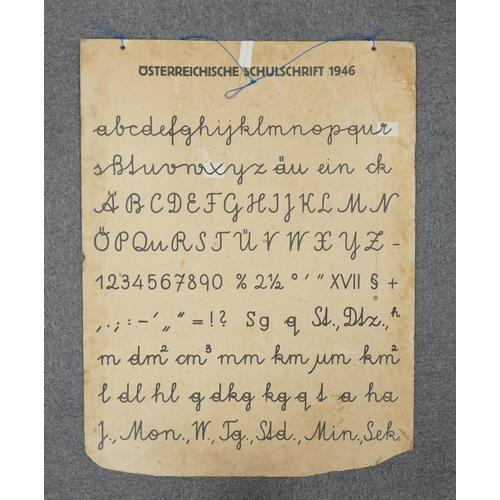 ÖSTERREICHISCHE SCHULSCHRIFT 1946
abcdefghijklmnopqur
sßtuvwxyz äu ein ck
ÄBCDEFGHIJKLMN
ÖPQuRSTÜVWXYZ-
1234567890 % 2½ °′″ XVII § +
,.;:-'„"=!? Sg q St., Dtz., h
m dm² cm³ mm km µm km²
l dl hl g dkg kg q t a ha
J., Mon., W., Tg., Std., Min., Sek.